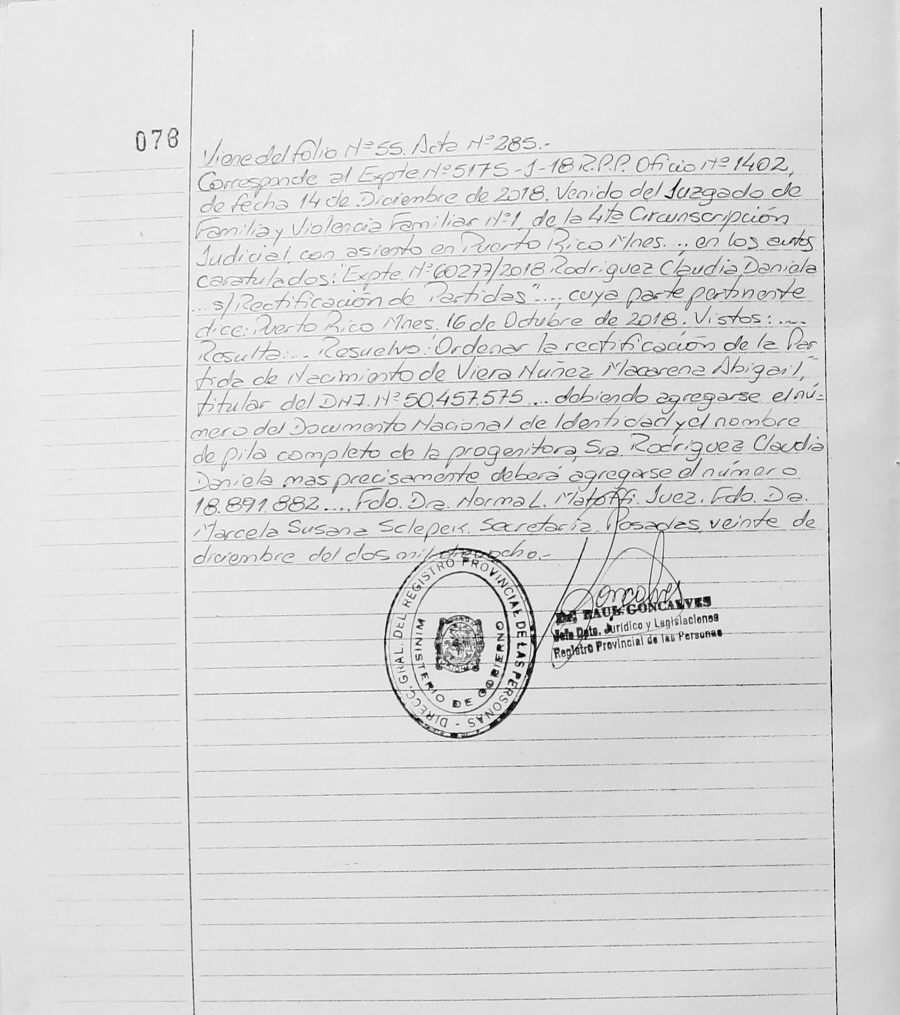 078
Viene del folio Nº 55. Acta Nº 285.-
Corresponde al Expte Nº 5175-J-18 R.P.P. Oficio Nº 1402,
de fecha 14 de Diciembre de 2018. Venido del Juzgado de
Familia y Violencia Familiar Nº1, de la 4ta Circunscripción
Judicial con asiento en Puerto Rico Mnes... en los autos
caratulados: "Expte Nº 60277/2018 Rodriguez Claudia Daniela
s/ Rectificación de Partidas".... cuya parte pertinente
dice: Puerto Rico Mnes. 16 de Octubre de 2018. Vistos:....
Resulta:... Resuelvo: Ordenar la rectificación de la Par-
tida de Nacimiento de Viera Nuñez Macarena Abigail,
titular del DNI. Nº 50.457.575... debiendo agregarse el nú-
mero del Documento Nacional de Identidad y el nombre
de pila completo de la progenitora, Sra. Rodriguez Claudia
Daniela mas precisamente deberá agregarse el número
18.891.882.... Fdo. Dra. Norma L. Juez. Fdo. Dra.
Marcela Susana Sclepek. Secretaria. Posadas, veinte de
diciembre del dos mil dieciocho.-
DIRECC. GRAL. DEL REGISTRO PROVINCIAL DE LAS PERSONAS -
MINISTERIO DE GOBIERNO
Goncalves
Dr. RAUL GONCALVES
Jefe Dpto. Jurídico y Legislaciones
Registro Provincial de las Personas